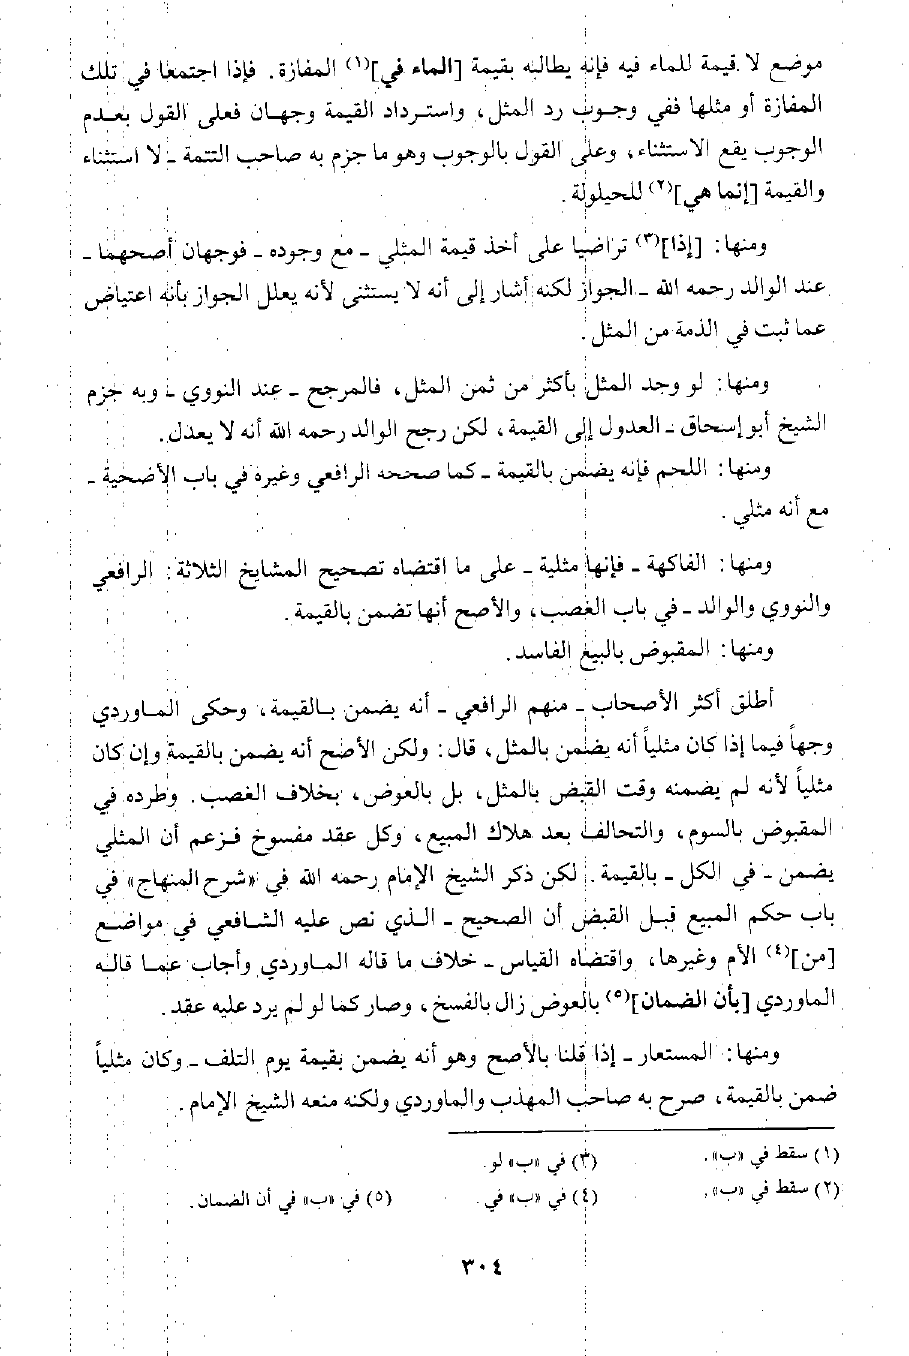 موضع لا قيمة للماء فيه فإنه يطالبه بقيمة [الماء في](١) المفازة. فإذا اجتمعا في تلك
المفازة أو مثلها ففي وجوب رد المثل، واسترداد القيمة وجهان فعلى القول بعدم
الوجوب يقع الاستثناء، وعلى القول بالوجوب وهو ما جزم به صاحب التتمة ـ لا استثناء
والقيمة [إنما هي](٢) للحيلولة.
ومنها: [إذا](٣) تراضيا على أخذ قيمة المثلي ـ مع وجوده ـ فوجهان أصحهما ـ
عند الوالد رحمه الله ـ الجواز لكنه أشار إلى أنه لا يستثنى لأنه يعلل الجواز بأنه اعتياض
عما ثبت في الذمة من المثل.
ومنها: لو وجد المثل بأكثر من ثمن المثل، فالمرجح ـ عند النووي ـ وبه جزم
الشيخ أبو إسحاق ـ العدول إلى القيمة، لكن رجح الوالد رحمه الله أنه لا يعدل.
ومنها: اللحم فإنه يضمن بالقيمة ـ كما صححه الرافعي وغيره في باب الأضحية ـ
مع أنه مثلي.
ومنها: الفاكهة ـ فإنها مثلية ـ على ما اقتضاه تصحيح المشايخ الثلاثة: الرافعي
والنووي والوالد ـ في باب الغصب، والأصح أنها تضمن بالقيمة.
ومنها: المقبوض بالبيع الفاسد.
أطلق أكثر الأصحاب ـ منهم الرافعي ـ أنه يضمن بالقيمة، وحكى الماوردي
وجهاً فيما إذا كان مثلياً أنه يضمن بالمثل، قال: ولكن الأصح أنه يضمن بالقيمة وإن كان
مثلياً لأنه لم يضمنه وقت القبض بالمثل، بل بالعوض، بخلاف الغصب. وطرده في
المقبوض بالسوم، والتحالف بعد هلاك المبيع، وكل عقد مفسوخ فزعم أن المثلي
يضمن ـ في الكل ـ بالقيمة. لكن ذكر الشيخ الإمام رحمه الله في «شرح المنهاج» في
باب حكم المبيع قبل القبض أن الصحيح ـ الذي نص عليه الشافعي في مواضع
[من](٤) الأم وغيرها، واقتضاه القياس ـ خلاف ما قاله الماوردي وأجاب عما قاله
الماوردي [بأن الضمان](٥) بالعوض زال بالفسخ، وصار كما لو لم يرد عليه عقد.
ومنها: المستعار ـ إذا قلنا بالأصح وهو أنه يضمن بقيمة يوم التلف ـ وكان مثلياً
ضمن بالقيمة، صرح به صاحب المهذب والماوردي ولكنه منعه الشيخ الإمام.
(١) سقط في «ب». (٣) في «ب» لو.
(٢) سقط في «ب». (٤) في «ب» في. (٥) في «ب» في أن الضمان.
٣٠٤